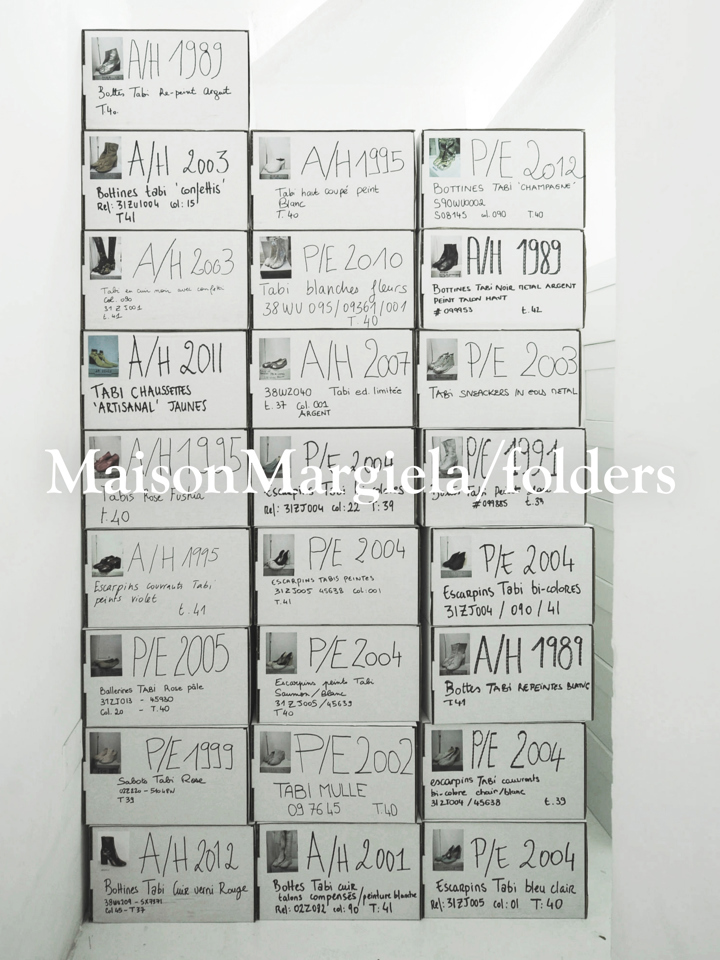 A/H 1989
Bottes Tabi Re-peint Argent
T.40
A/H 2003
Bottines tabi 'confettis'
Ref: 31ZU1004 col: 15
T41
A/H 1995
Tabi haut coupé peint
Blanc
T. 40
P/E 2012
BOTTINES TABI 'CHAMPAGNE'
S90WU0002
S08145 col. 090 T.40
A/H 2003
Tabi en cuir noir avec confetti
Col. 090
31ZJ001
t. 41
P/E 2010
Tabi blanches fleurs
38WU 095/09361/001
T 40
A/H 1989
BOTTINES TABI NOIR METAL ARGENT
PEINT TALON HAUT
# 099953 t. 42
A/H 2011
TABI CHAUSSETTES
'ARTISANAL' JAUNES
A/H 2007
38W2040 Tabi ed. limitée
t. 37 Col. 001
ARGENT
P/E 2003
TABI SNEACKERS IN GOLD METAL
A/H 1995
Tabis Rose Fushia
T.40
P/E 2004
Escarpins Tabi
Ref: 31ZJ004 col: 22 T: 39
P/E 1991
Tabi
# 099885 t. 39
MaisonMargiela/folders
A/H 1995
Escarpins couvrants Tabi
peints violet
t. 41
P/E 2004
ESCARPINS TABIS PEINTES
31ZJ005 45638 col: 001
T.41
P/E 2004
Escarpins Tabi bi-colores
31ZJ004 / 090 / 41
P/E 2005
Ballerines TABI Rose pâle
31ZJ013 - 45930
Col. 20 - T. 40
P/E 2004
Escarpins peints Tabi
Saumon/Blanc
31ZJ005/45639
T40
A/H 1989
Bottes TABI REPEINTES BLANC
T41
P/E 1999
Sabots Tabi Rose
T39
P/E 2002
TABI MULLE
09 76 45 T40
P/E 2004
escarpins TABI couvrants
bi-colore chair/blanc
31ZJ004 / 45638 t. 39
A/H 2012
Bottines Tabi Cuir verni Rouge
38WU209 - SX7871
Col 45 - T 37
A/H 2001
Bottes Tabi cuir
talons compensés/peinture blanche
Ref: 02Z082 col: 90 T: 41
P/E 2004
Escarpins Tabi bleu clair
Ref: 31ZJ005 col: 01 T: 40